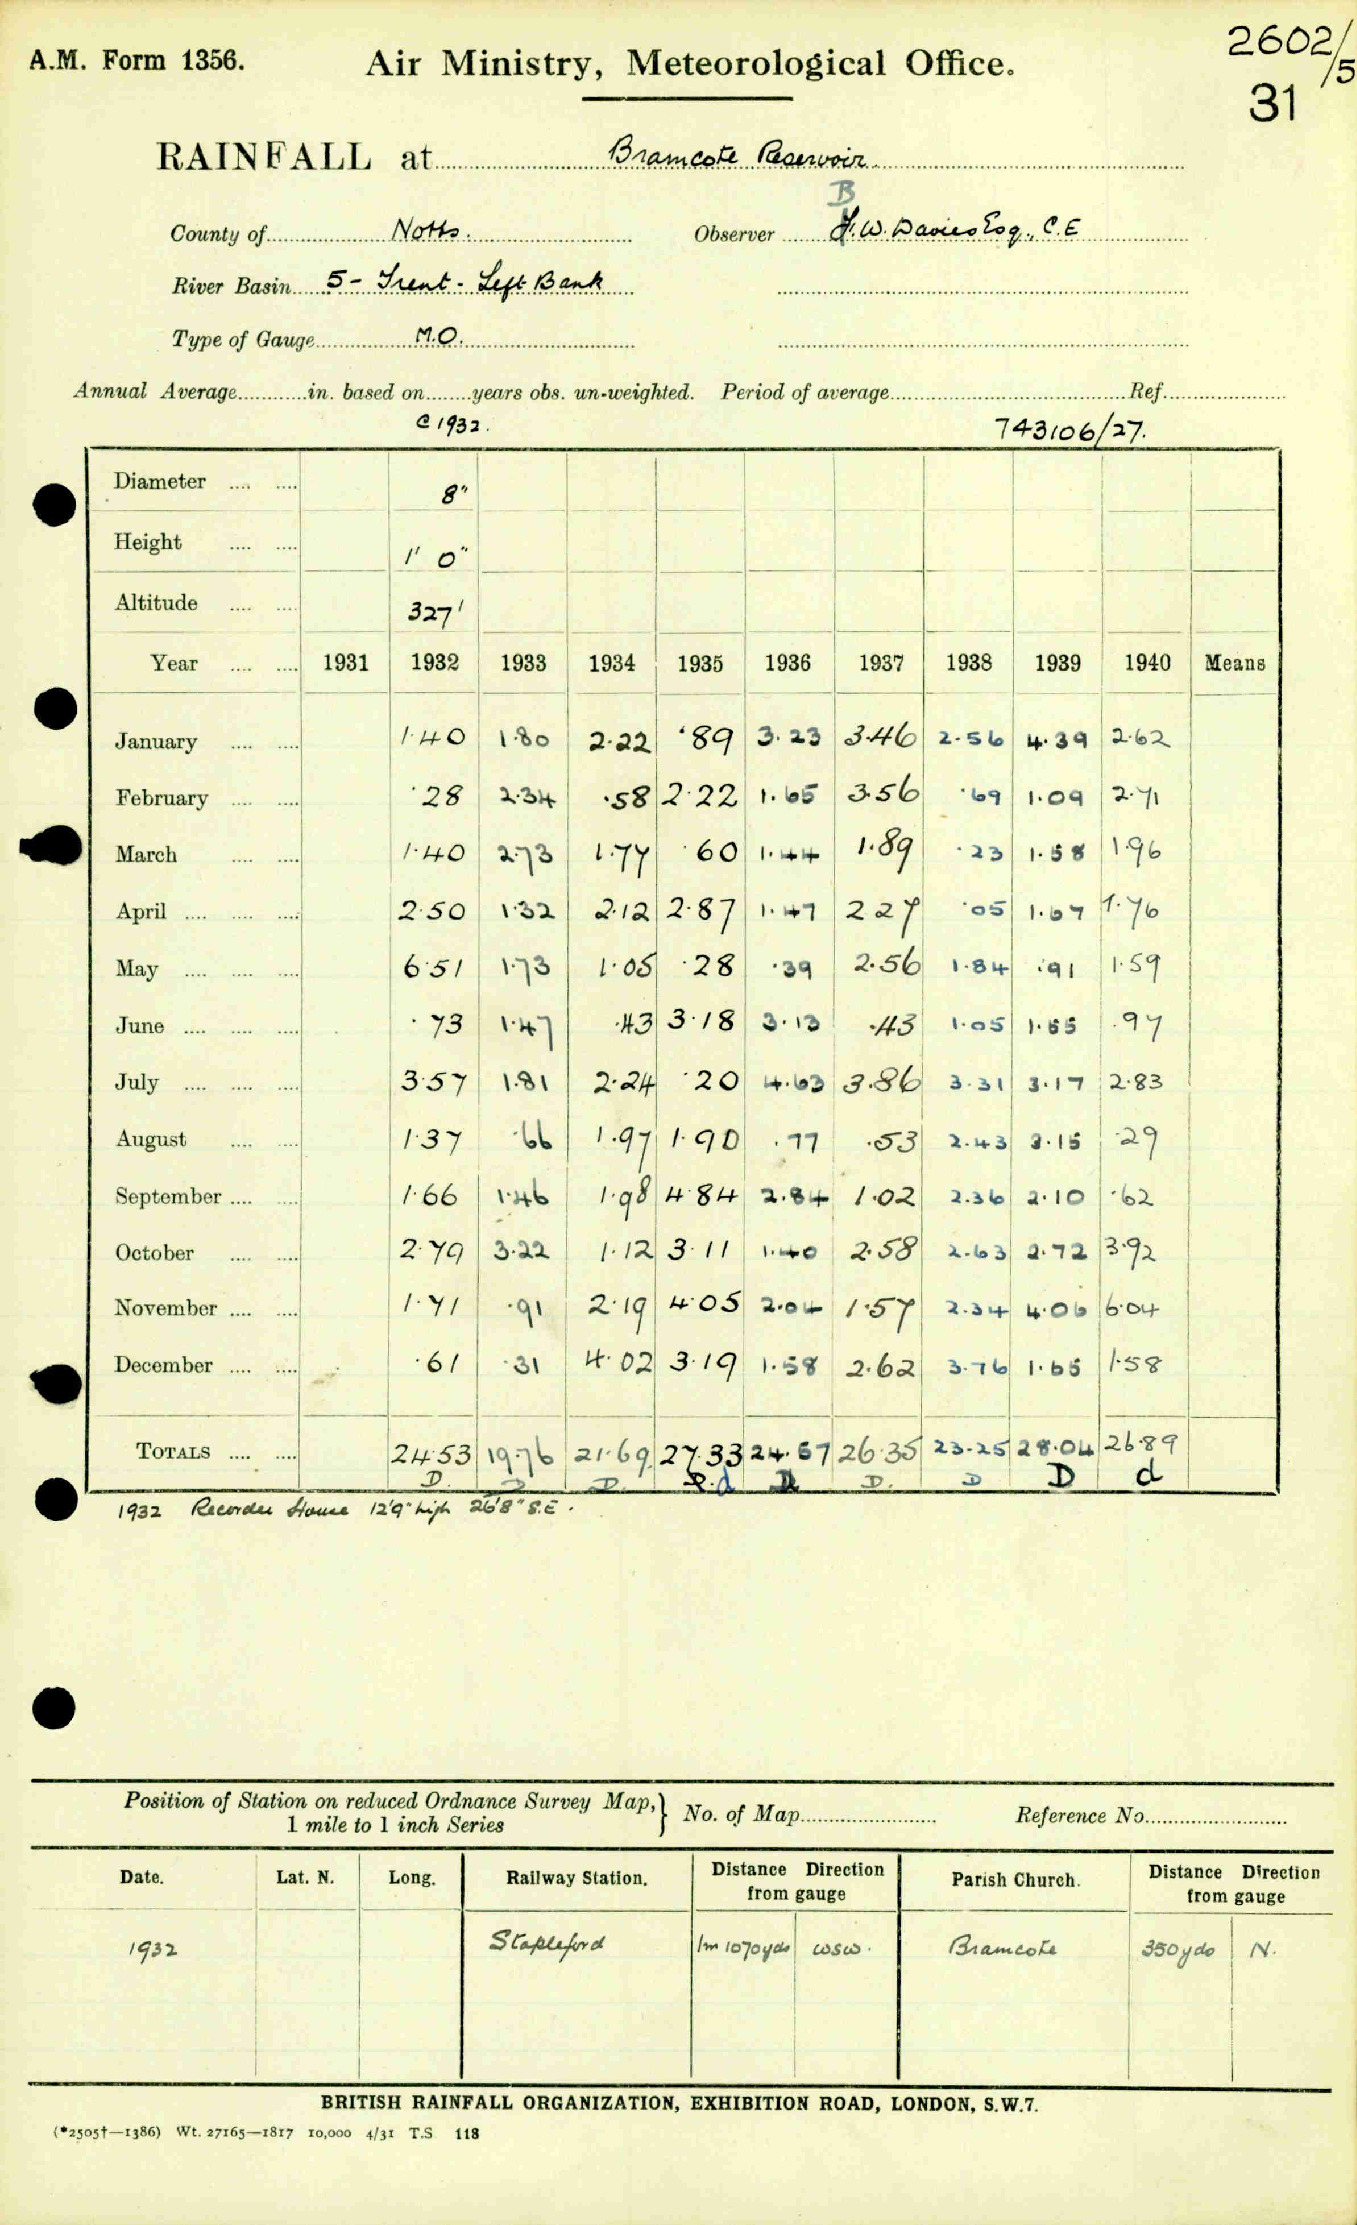 2602/5
31
A.M. Form 1356.
Air Ministry, Meteorological Office.
RAINFALL at Bramcote Reservoir
B
County of Notts. Observer F.W. Davies Esq., C.E
River Basin 5 - Trent - Left Bank
Type of Gauge M.O.
Annual Average in. based on years obs. un-weighted. Period of average Ref.
C 1932. 743106/27.
Diameter 8"
Height 1' 0"
Altitude 327'
Year 1931 1932 1933 1934 1935 1936 1937 1938 1939 1940 Means
January 1.40 1.80 2.22 .89 3.23 3.46 2.56 4.39 2.62
February .28 2.34 .58 2.22 1.65 3.56 .69 1.09 2.71
March 1.40 2.73 1.77 .60 1.44 1.89 .23 1.58 1.96
April 2.50 1.32 2.12 2.87 1.47 2.27 .05 1.67 1.76
May 6.51 1.73 1.05 .28 .39 2.56 1.84 .91 1.59
June .73 1.47 .43 3.18 3.13 .43 1.05 1.55 .97
July 3.57 1.81 2.24 .20 4.63 3.86 3.31 3.17 2.83
August 1.37 .66 1.97 1.90 .77 .53 2.43 3.15 .29
September 1.66 1.46 1.98 4.84 2.84 1.02 2.36 2.10 .62
October 2.79 3.22 1.12 3.11 1.40 2.58 2.63 2.72 3.92
November 1.71 .91 2.19 4.05 2.04 1.57 2.34 4.06 6.04
December .61 .31 4.02 3.19 1.58 2.62 3.76 1.65 1.58
TOTALS 24.53 19.76 21.69 27.33 24.57 26.35 23.25 28.04 26.89
D. D D. D. d D D. D D d
1932 Recorder House 12'9" high 26'8" S.E.
Position of Station on reduced Ordnance Survey Map, 1 mile to 1 inch Series } No. of Map Reference No.
Date. Lat. N. Long. Railway Station. Distance Direction from gauge Parish Church. Distance Direction from gauge
1932 Stapleford 1m 1070yds WSW. Bramcote 350yds N.
BRITISH RAINFALL ORGANIZATION, EXHIBITION ROAD, LONDON, S.W.7.
(*2505†—1386) Wt. 27165—1817 10,000 4/31 T.S 118